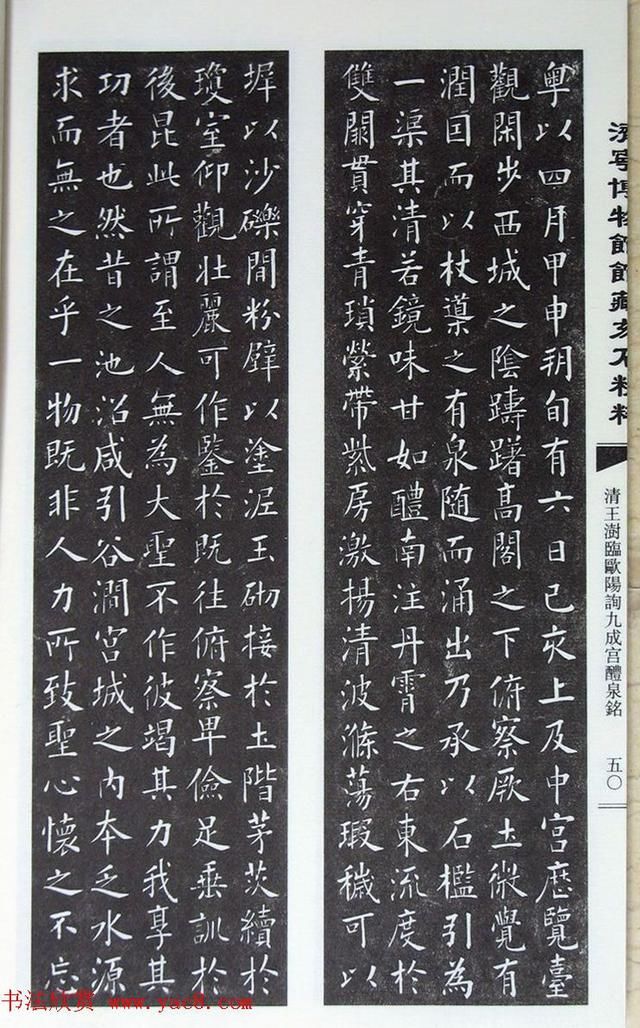 濟寧博物館館藏
清王澍臨歐陽詢九成宮醴泉銘
五〇
粤以四月甲申朔旬有六日己亥上及中宮歷覽臺
觀閑步西城之陰躊躇高閣之下俯察厥土微覺有
潤因而以杖導之有泉隨而涌出乃承以石檻引為
一渠其清若鏡味甘如醴南注丹霄之右東流度於
雙闕貫穿青瑣縈帶紫房激揚清波滌蕩瑕穢可以
墀以沙礫間粉壁以塗泥玉砌接於土階茅茨續於
瓊室仰觀壯麗可作鑒於既往俯察卑儉足垂訓於
後昆此所謂至人無為大聖不作彼竭其力我享其
功者也然昔之池沼咸引谷澗宮城之內本乏水源
求而無之在乎一物既非人力所致聖心懷之不忘
书法欣赏 www.yac8.com